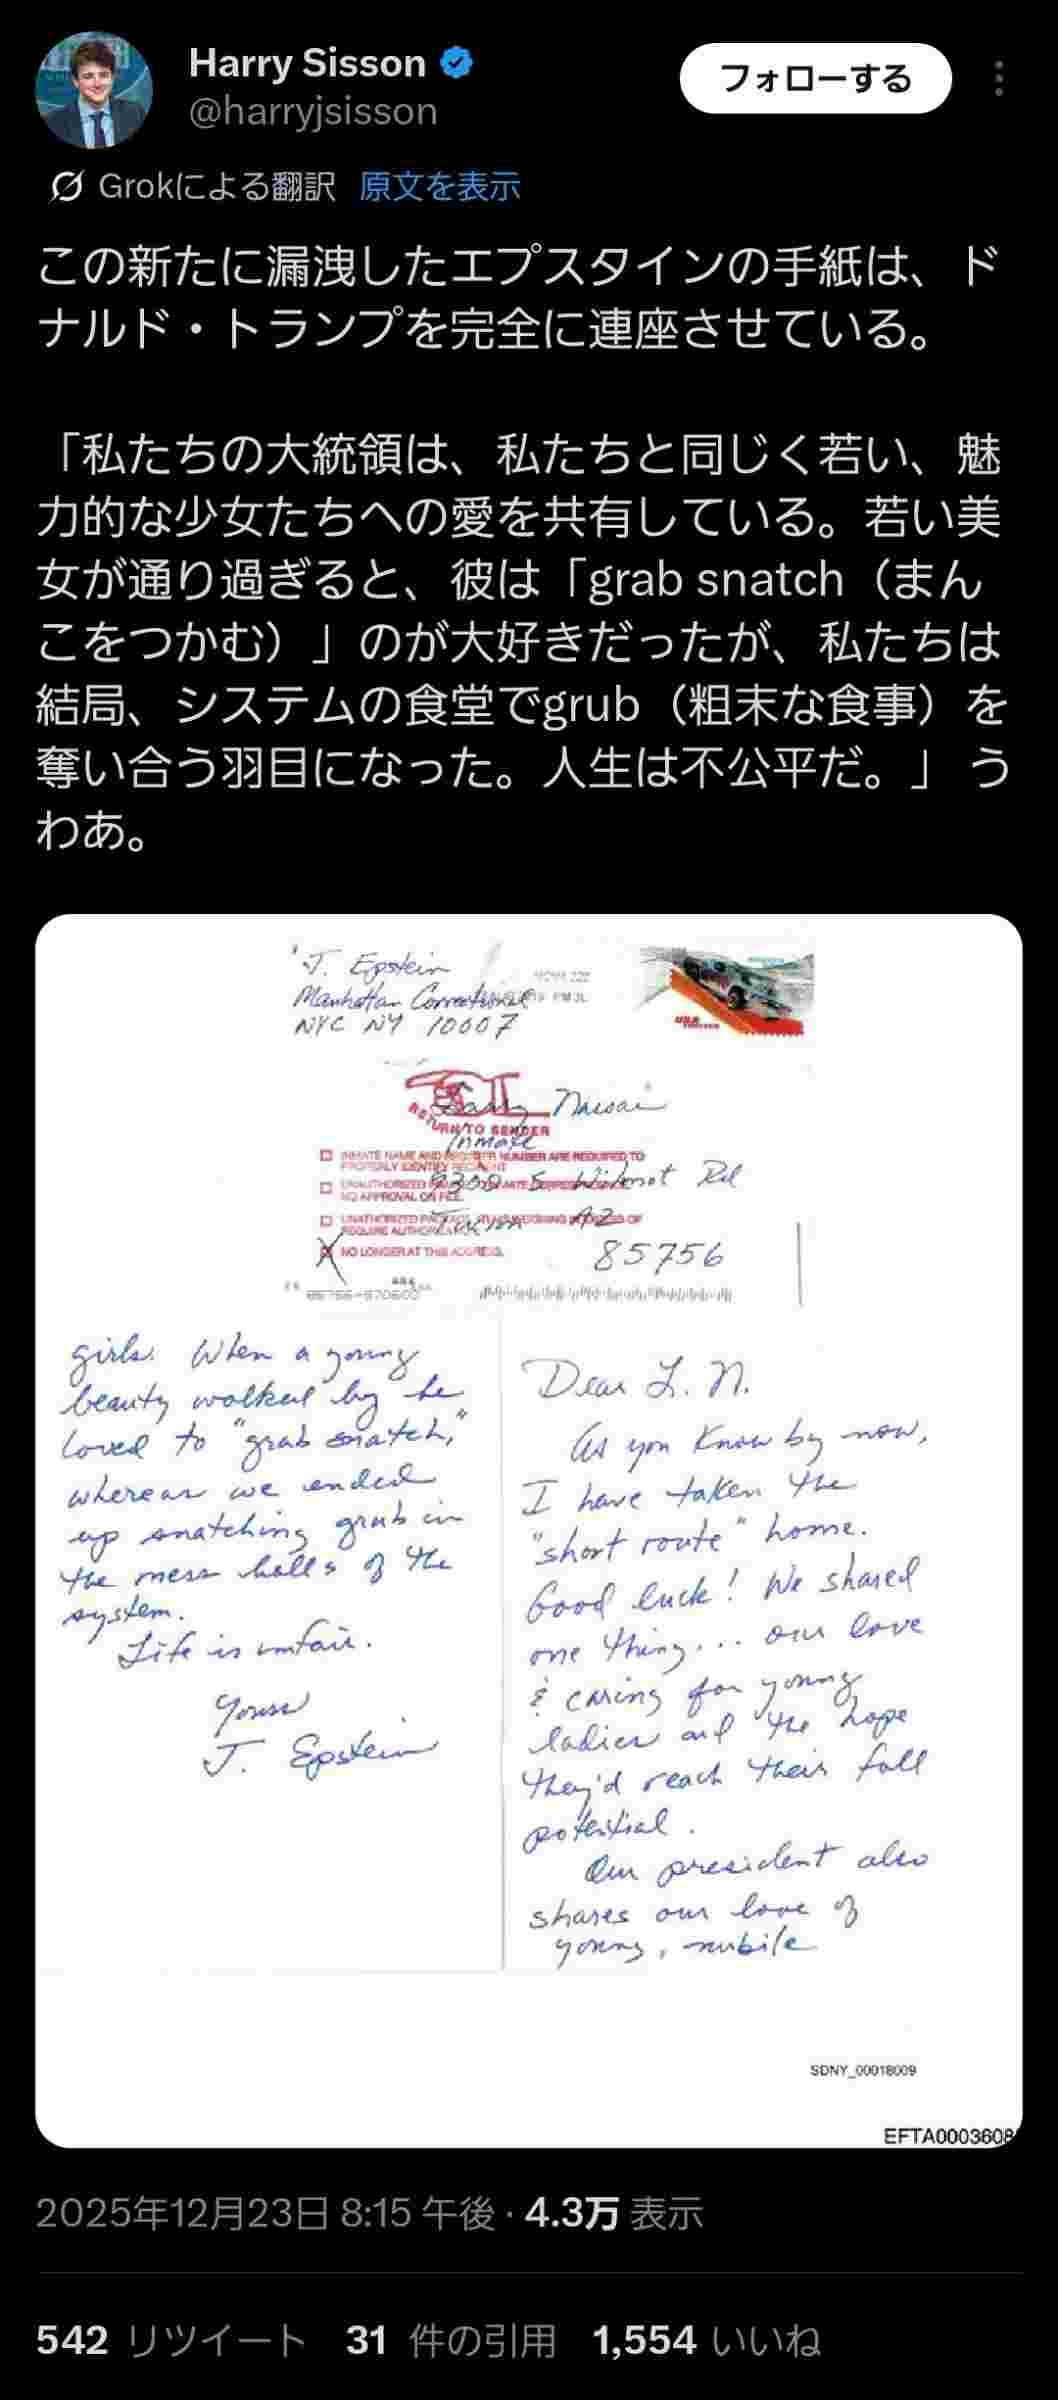 Harry Sisson
@harryjsisson
フォローする
Grokによる翻訳 原文を表示
この新たに漏洩したエプスタインの手紙は、ド
ナルド・トランプを完全に連座させている。
「私たちの大統領は、私たちと同じく若い、魅
力的な少女たちへの愛を共有している。若い美
女が通り過ぎると、彼は「grab snatch（まん
こをつかむ）」のが大好きだったが、私たちは
結局、システムの食堂でgrub（粗末な食事）を
奪い合う羽目になった。人生は不公平だ。」 う
わあ。
J. Epstein
Manhattan Correctional
NYC NY 10007
USA
Larry
RETURN TO SENDER
Inmate
INMATE NAME AND REGISTER NUMBER ARE REQUIRED TO
PROPERLY IDENTIFY RECIPIENT
9300 S. Wilmot Rd
NO APPROVAL ON FILE.
Tucson AZ
NO LONGER AT THIS ADDRESS.
85756
girls. When a young
beauty walked by he
loved to "grab snatch,"
whereas we ended
up snatching grub in
the mess halls of the
system.
Life is unfair.
Yours
J. Epstein
Dear L. N.
As you know by now,
I have taken the
"short route" home.
Good luck! We shared
one thing... our love
& caring for young
ladies and the hope
they'd reach their full
potential.
Our president also
shares our love of
young, nubile
SDNY_00018009
EFTA0003608
2025年12月23日 8:15 午後 · 4.3万 表示
542 リツイート 31 件の引用 1,554 いいね